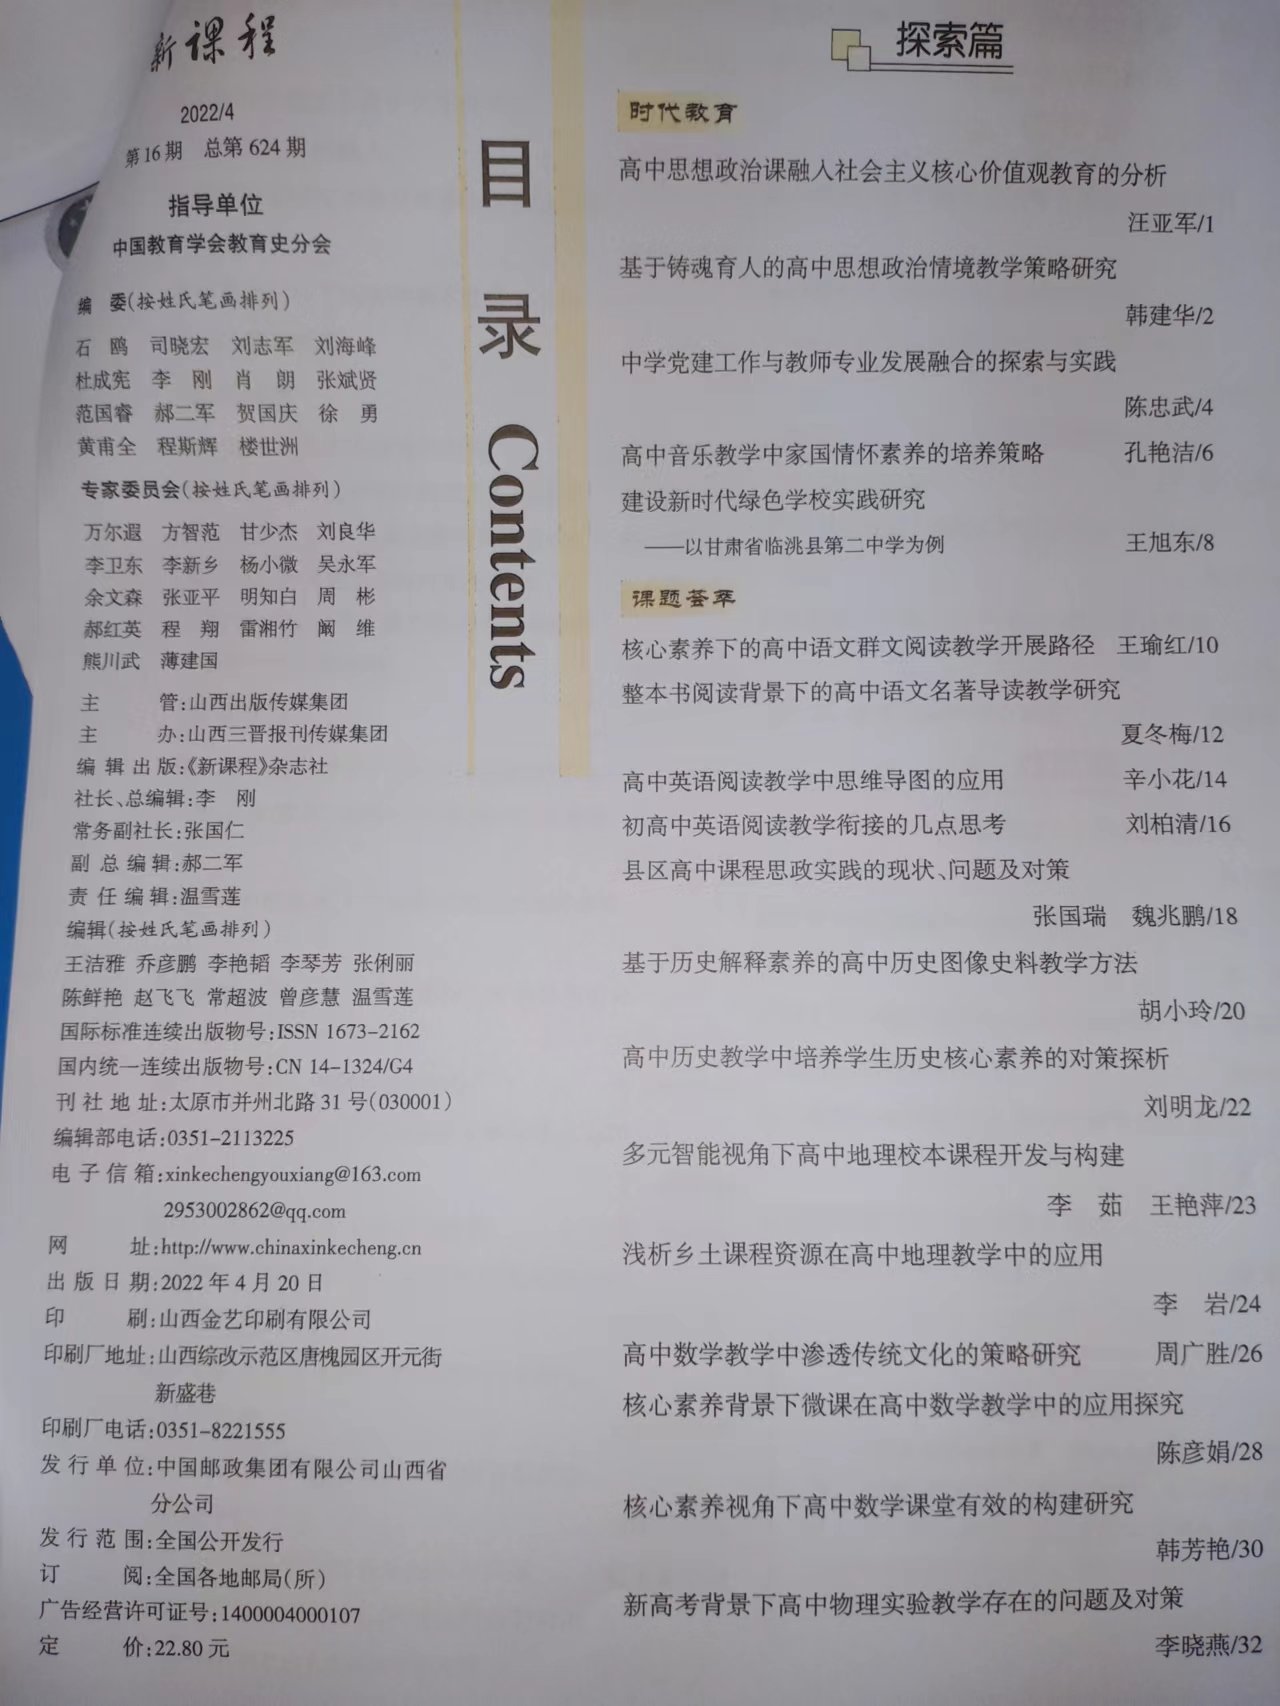 新课程
2022/4
第16期 总第624期
指导单位
中国教育学会教育史分会
编 委(按姓氏笔画排列)
石 鸥 司晓宏 刘志军 刘海峰
杜成宪 李 刚 肖 朗 张斌贤
范国睿 郝二军 贺国庆 徐 勇
黄甫全 程斯辉 楼世洲
专家委员会(按姓氏笔画排列)
万尔遐 方智范 甘少杰 刘良华
李卫东 李新乡 杨小微 吴永军
余文森 张亚平 明知白 周 彬
郝红英 程 翔 雷湘竹 阚 维
熊川武 薄建国
主 管:山西出版传媒集团
主 办:山西三晋报刊传媒集团
编辑出版:《新课程》杂志社
社长、总编辑:李 刚
常务副社长:张国仁
副总编辑:郝二军
责任编辑:温雪莲
编辑(按姓氏笔画排列)
王洁雅 乔彦鹏 李艳韬 李琴芳 张俐丽
陈鲜艳 赵飞飞 常超波 曾彦慧 温雪莲
国际标准连续出版物号:ISSN 1673-2162
国内统一连续出版物号:CN 14-1324/G4
刊社地址:太原市并州北路31号(030001)
编辑部电话:0351-2113225
电子信箱:xinkechengyouxiang@163.com
2953002862@qq.com
网 址:http://www.chinaxinkecheng.cn
出版日期:2022年4月20日
印 刷:山西金艺印刷有限公司
印刷厂地址:山西综改示范区唐槐园区开元街
新盛巷
印刷厂电话:0351-8221555
发行单位:中国邮政集团有限公司山西省
分公司
发行范围:全国公开发行
订 阅:全国各地邮局(所)
广告经营许可证号:1400004000107
定 价:22.80元
目录 Contents
探索篇
时代教育
高中思想政治课融入社会主义核心价值观教育的分析
汪亚军/1
基于铸魂育人的高中思想政治情境教学策略研究
韩建华/2
中学党建工作与教师专业发展融合的探索与实践
陈忠武/4
高中音乐教学中家国情怀素养的培养策略 孔艳洁/6
建设新时代绿色学校实践研究
——以甘肃省临洮县第二中学为例 王旭东/8
课题荟萃
核心素养下的高中语文群文阅读教学开展路径 王瑜红/10
整本书阅读背景下的高中语文名著导读教学研究
夏冬梅/12
高中英语阅读教学中思维导图的应用 辛小花/14
初高中英语阅读教学衔接的几点思考 刘柏清/16
县区高中课程思政实践的现状、问题及对策
张国瑞 魏兆鹏/18
基于历史解释素养的高中历史图像史料教学方法
胡小玲/20
高中历史教学中培养学生历史核心素养的对策探析
刘明龙/22
多元智能视角下高中地理校本课程开发与构建
李 茹 王艳萍/23
浅析乡土课程资源在高中地理教学中的应用
李 岩/24
高中数学教学中渗透传统文化的策略研究 周广胜/26
核心素养背景下微课在高中数学教学中的应用探究
陈彦娟/28
核心素养视角下高中数学课堂有效的构建研究
韩芳艳/30
新高考背景下高中物理实验教学存在的问题及对策
李晓燕/32